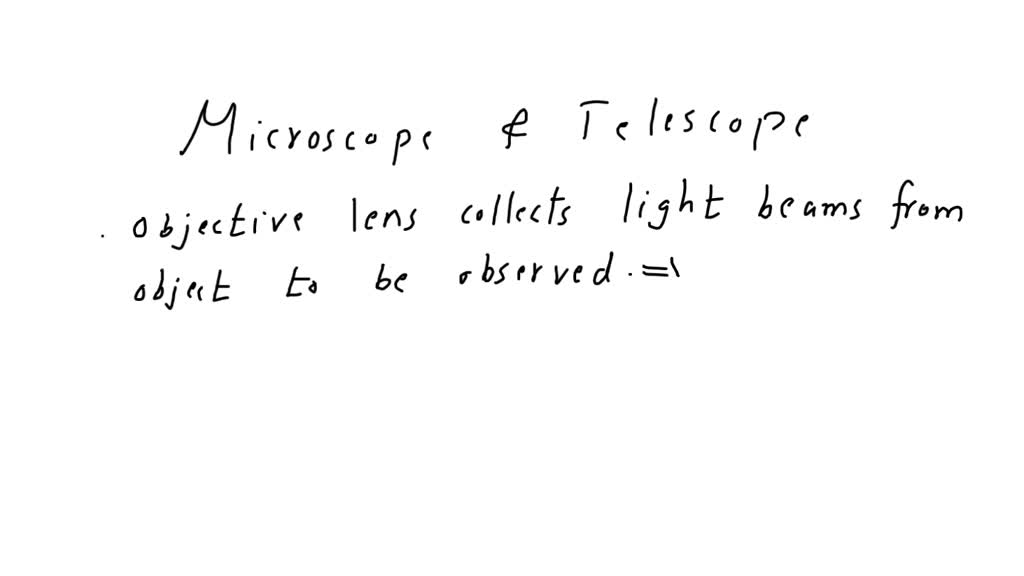 Microscope & Telescope
. objective lens collects light beams from
object to be observed . =\